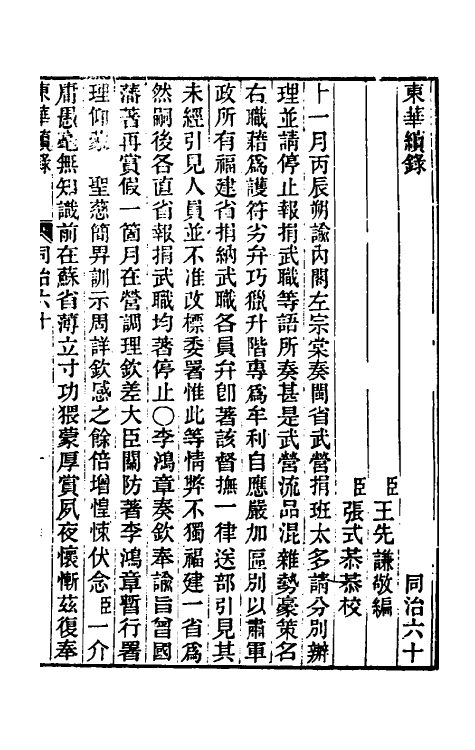 東華續錄 同治六十
臣王先謙敬編
臣張式恭恭校
十一月丙辰朔諭內閣左宗棠奏閩省武營捐班太多請分別辦
理並請停止報捐武職等語所奏甚是武營流品混雜勢豪策名
右職藉爲護符劣弁巧獵升階專爲牟利自應嚴加區別以肅軍
政所有福建省捐納武職各員弁卽著該督撫一律送部引見其
未經引見人員並不准改標委署惟此等情弊不獨福建一省爲
然嗣後各直省報捐武職均著停止〇李鴻章奏欽奉諭旨曾國
藩著再賞假一箇月在營調理欽差大臣關防著李鴻章暫行署
理仰蒙 聖慈簡畀訓示周詳欽感之餘倍增惶悚伏念臣一介
庸愚毫無知識前在蘇省薄立寸功猥蒙厚賞夙夜懷慚茲復奉
東華續錄 同治六十 一